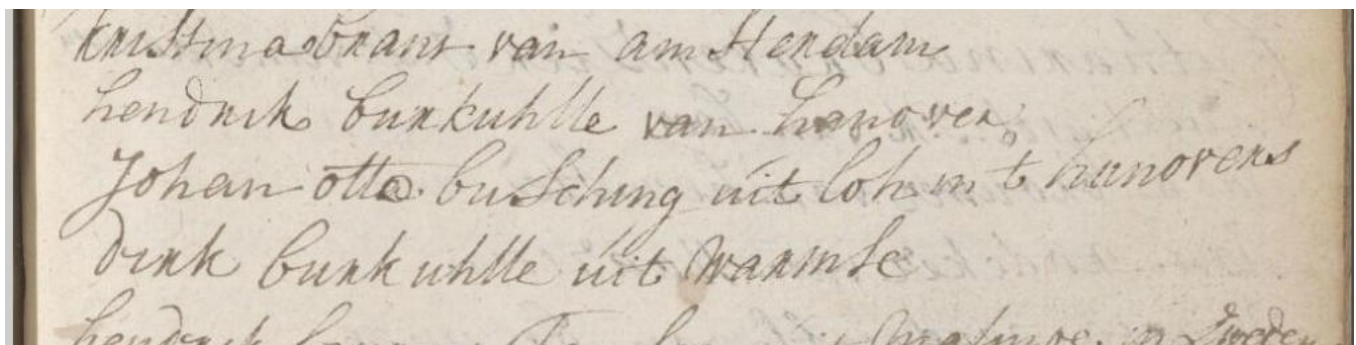 kristina brant van amsterdam
hendrik burkuhlle van hanover
Johan otto busching uit loh in t hanovers
dirk burkuhlle uit warmse
hendrik in Zweden